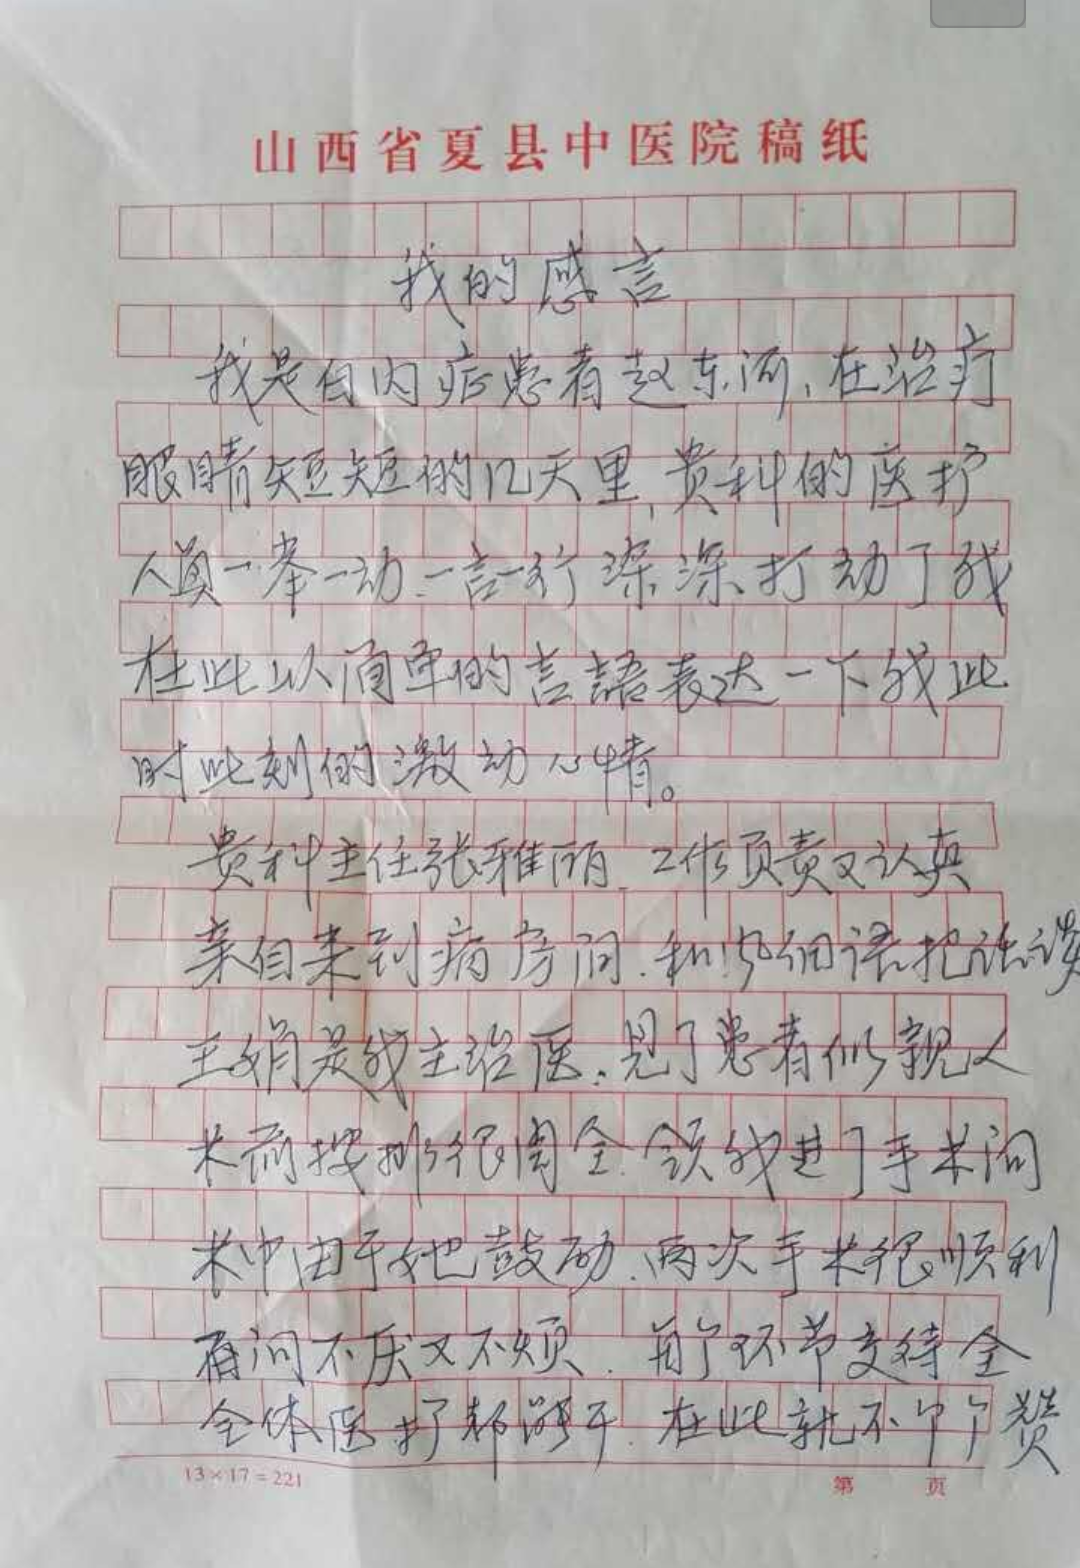 山西省夏县中医院稿纸
我的感言
我是白内症患者赵东河、在治疗
眼睛短短的几天里，贵科的医护
人员一举一动、一言一行深深打动了我
在此以简单的言語表达一下我此
时此刻的激动心情。
贵科主任张雅丽、工作负责又认真
亲自来到病房间、和风细语把话谈
王娟是我主治医、見了患者似親人
术前按排很周全、领我进了手术间
术中由于她鼓励、两次手术很顺利
不厌又不烦、环节交待全
全体医护都能干、在此就不个个赞
13×17=221
第 页